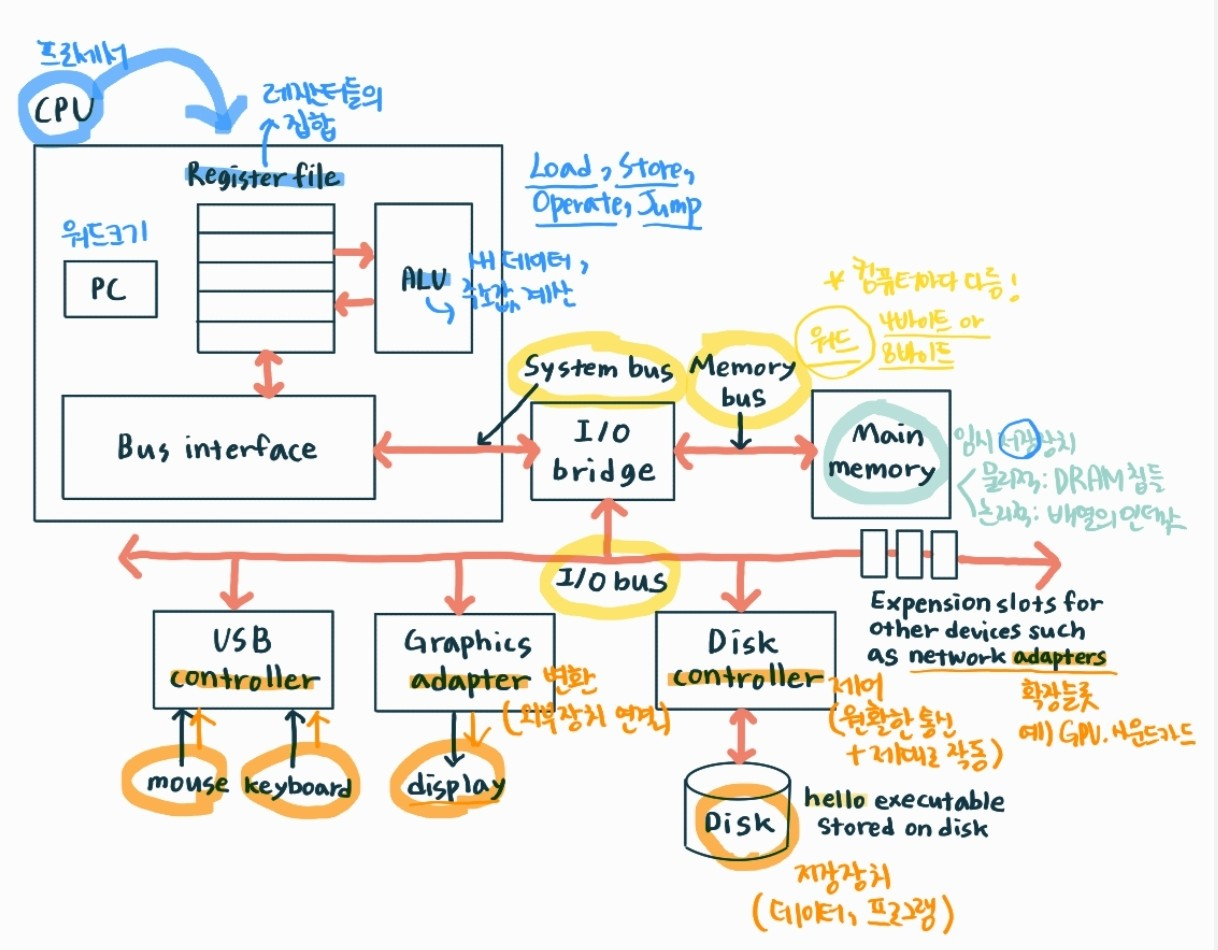 프로세서
CPU
레지스터들의
집합
Register file
Load, Store,
Operate, Jump
워드크기
PC
ALU
새 데이터,
주소값 계산
* 컴퓨터마다 다름!
워드
4바이트 or
8바이트
System bus
Memory
bus
Bus interface
I/O
bridge
Main
memory
임시 저장장치
물리적: DRAM 칩들
논리적: 배열의 인덱스
I/O bus
Expension slots for
other devices such
as network adapters
확장슬롯
예) GPU. 사운드카드
USB
controller
Graphics
adapter
변환
(외부장치 연결)
Disk
controller
제어
(원활한 통신
+ 제대로 작동)
mouse
keyboard
display
Disk
hello executable
stored on disk
저장장치
(데이터, 프로그램)